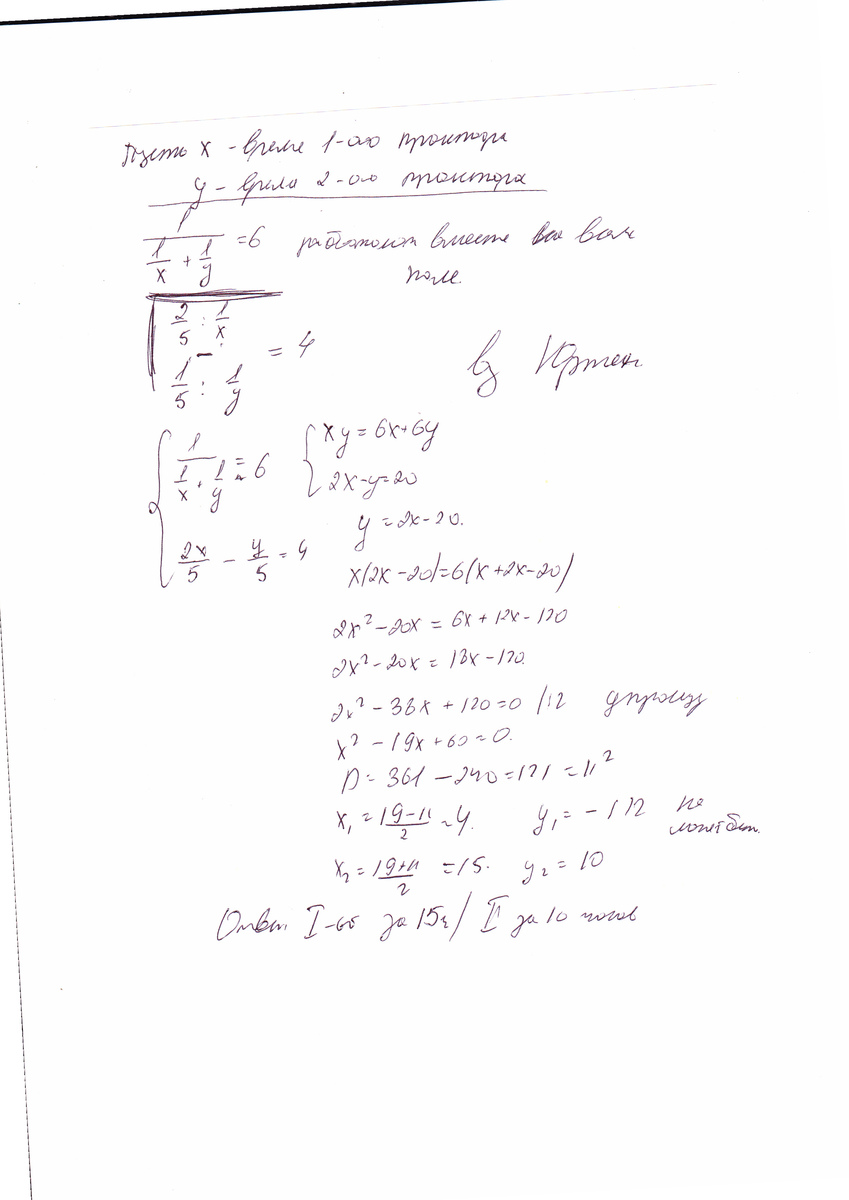 Пусть x - время 1-ого трактора
y - время 2-ого трактора
1/(1/x + 1/y) = 6 работают вместе все
поле.
2/5 : 1/x
− = 4
1/5 : 1/y
{ 1/(1/x + 1/y) = 6 { xy = 6x+6y
2x-y=20
y = 2x-20.
2x/5 − y/5 = 4
x(2x-20)=6(x+2x-20)
2x² - 20x = 6x + 12x - 120
2x² - 20x = 18x - 120.
2x² - 38x + 120 = 0 /:2
x² - 19x + 60 = 0.
D = 361 - 240 = 121 = 11²
x₁ = (19-11)/2 = 4. y₁ = - 112 не
может быт.
x₂ = (19+11)/2 = 15. y₂ = 10
Ответ. I-ый за 15ч/ II за 10 часов